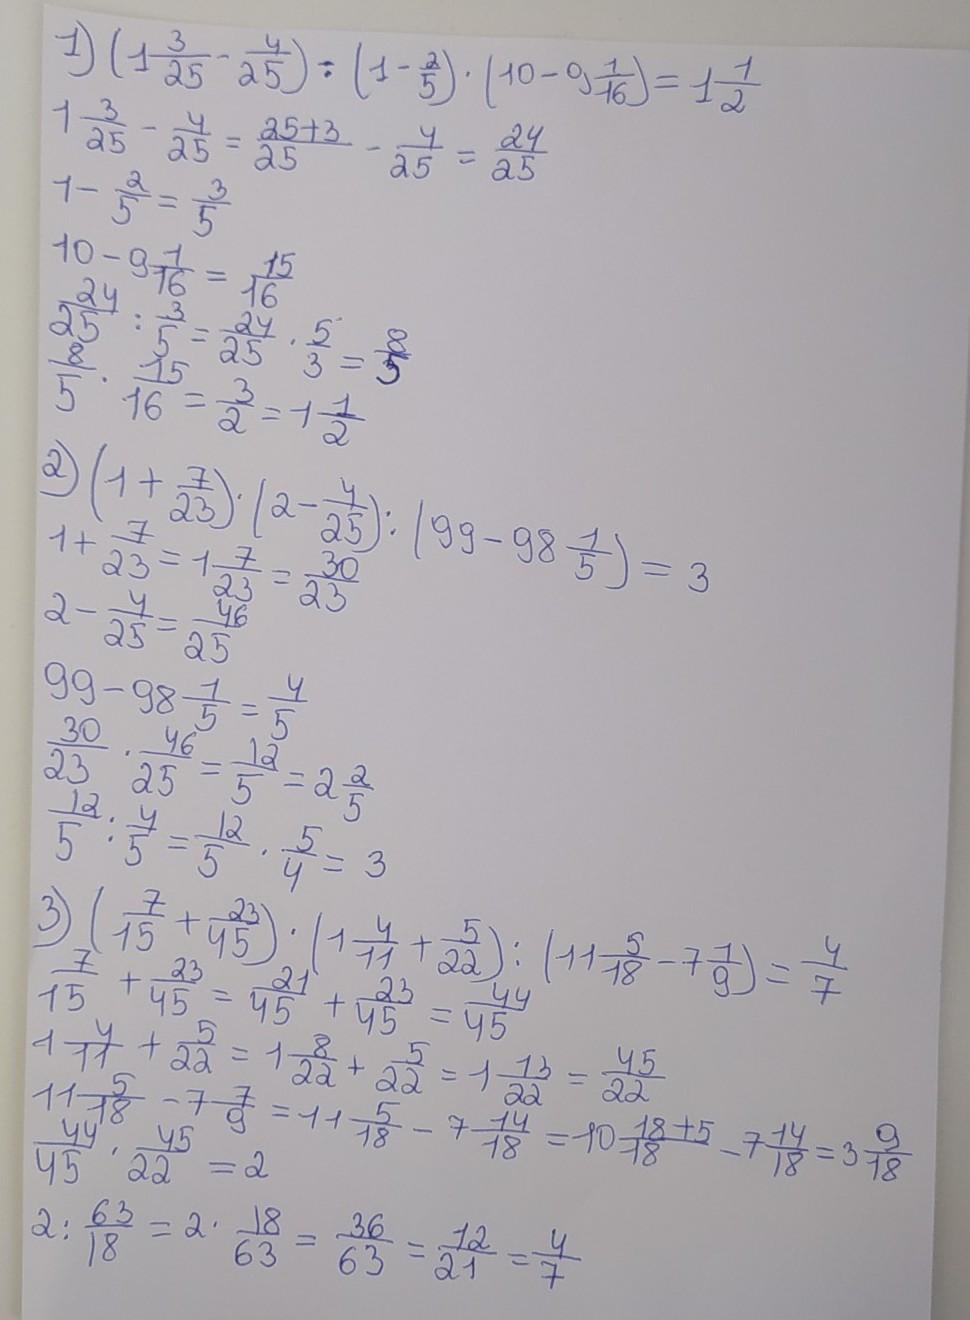 1) (1 3/25 - 4/25) : (1 - 2/5) · (10 - 9 1/16) = 1 1/2
1 3/25 - 4/25 = 25+3/25 - 4/25 = 24/25
1 - 2/5 = 3/5
10 - 9 1/16 = 15/16
24/25 : 3/5 = 24/25 · 5/3 = 8/5
8/5 · 15/16 = 3/2 = 1 1/2
2) (1 + 7/23) · (2 - 4/25) : (99 - 98 1/5) = 3
1 + 7/23 = 1 7/23 = 30/23
2 - 4/25 = 46/25
99 - 98 1/5 = 4/5
30/23 · 46/25 = 12/5 = 2 2/5
12/5 : 4/5 = 12/5 · 5/4 = 3
3) (7/15 + 23/45) · (1 4/11 + 5/22) : (11 5/18 - 7 7/9) = 4/7
7/15 + 23/45 = 21/45 + 23/45 = 44/45
1 4/11 + 5/22 = 1 8/22 + 5/22 = 1 13/22 = 45/22
11 5/18 - 7 7/9 = 11 5/18 - 7 14/18 = 10 18+5/18 - 7 14/18 = 3 9/18
44/45 · 45/22 = 2
2 : 63/18 = 2 · 18/63 = 36/63 = 12/21 = 4/7